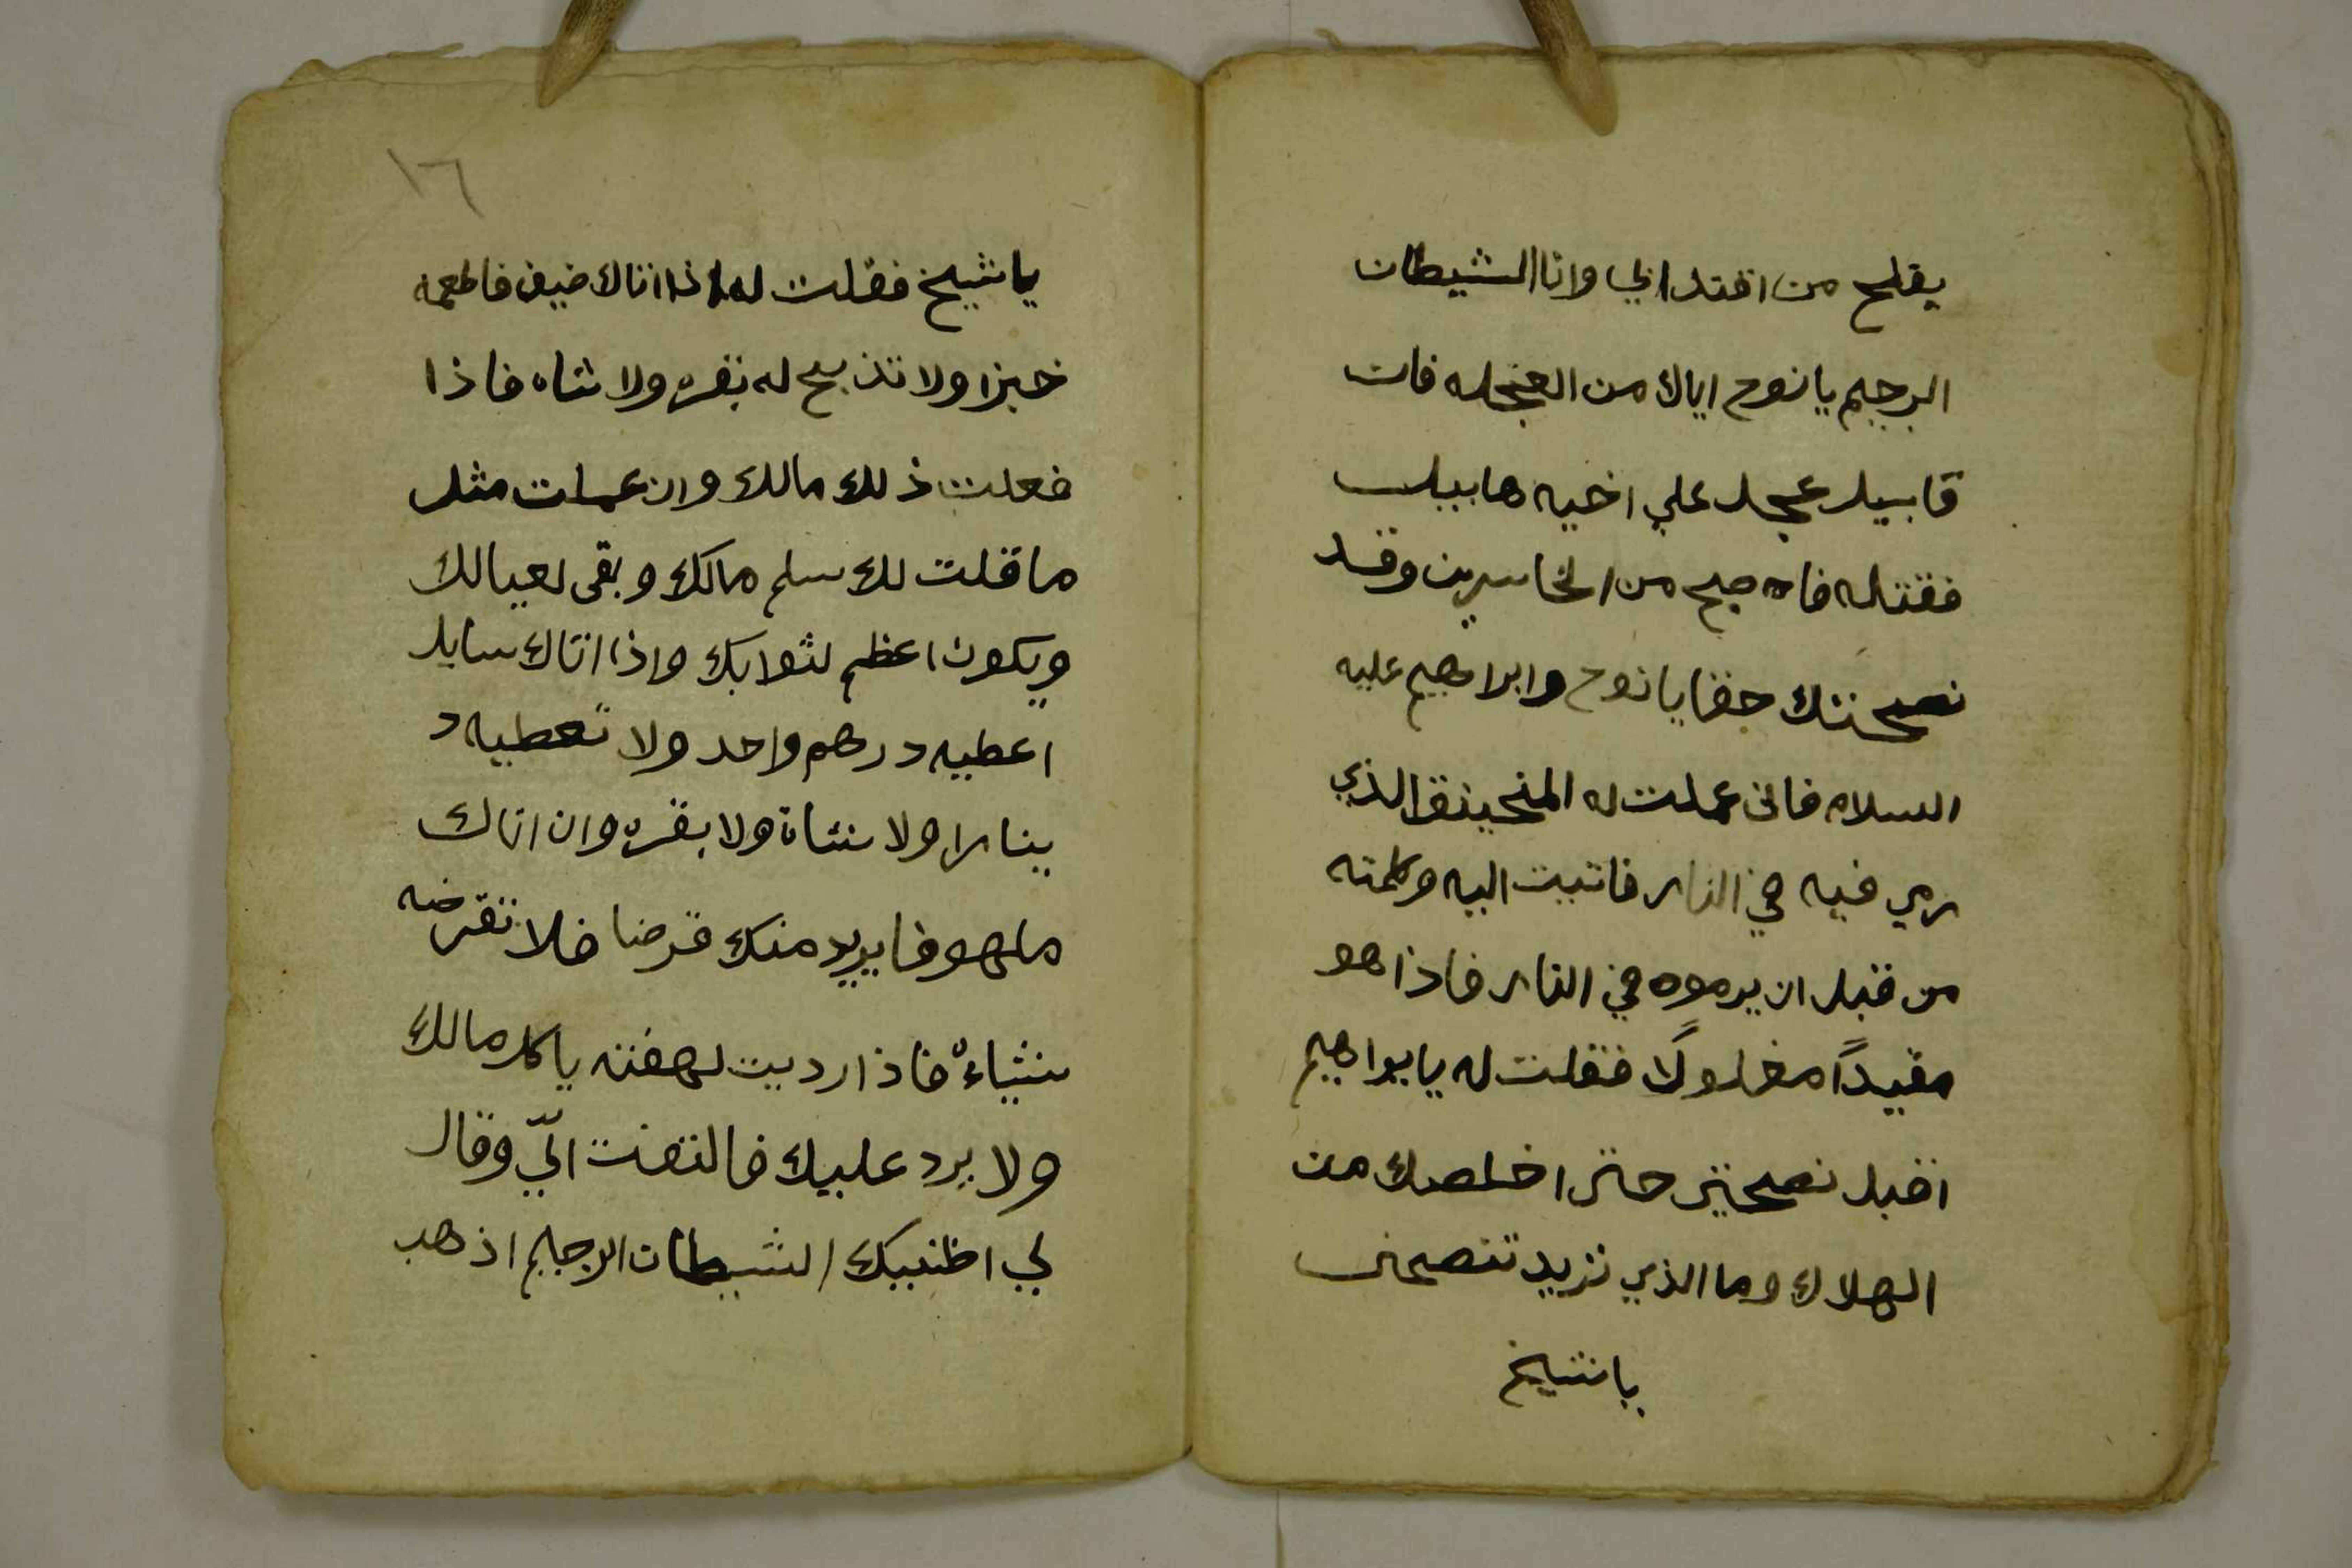 يفلح من اقتدا بي وانا الشيطان
الرجيم يا نوح اياك من العجله فان
قابيل عجل علي اخيه هابيل
فقتله فاصبح من الخاسرين وقد
نصحتك حقا يا نوح وابراهيم عليه
السلام فاني عملت له المنجنيق الذي
رمي فيه في النار فاتيت اليه وكلمته
من قبل ان يرموه في النار فاذا هو
مقيدًا مغلولًا فقلت له يا ابراهيم
اقبل نصحتي حتي اخلصك من
الهلاك وما الذي تريد تنصحني
يا شيخ
١٦
يا شيخ فقلت له اذا اتاك ضيف فاطعمه
خبزا ولا تذبح له بقره ولا شاه فاذا
فعلت ذلك مالك وان عملت مثل
ما قلت لك سلم مالك وبقى لعيالك
ويكون اعظم لثوابك واذا اتاك سايل
اعطيه درهم واحد ولا تعطيه د
ينارا ولا شاة ولا بقره وان اتاك
ملهوفا يريد منك قرضا فلا تقرضه
شياءً فاذا رديت لهفته ياكل مالك
ولا يرد عليك فالتفت اليّ وقال
لي اظنيك الشيطان الرجيم اذهب